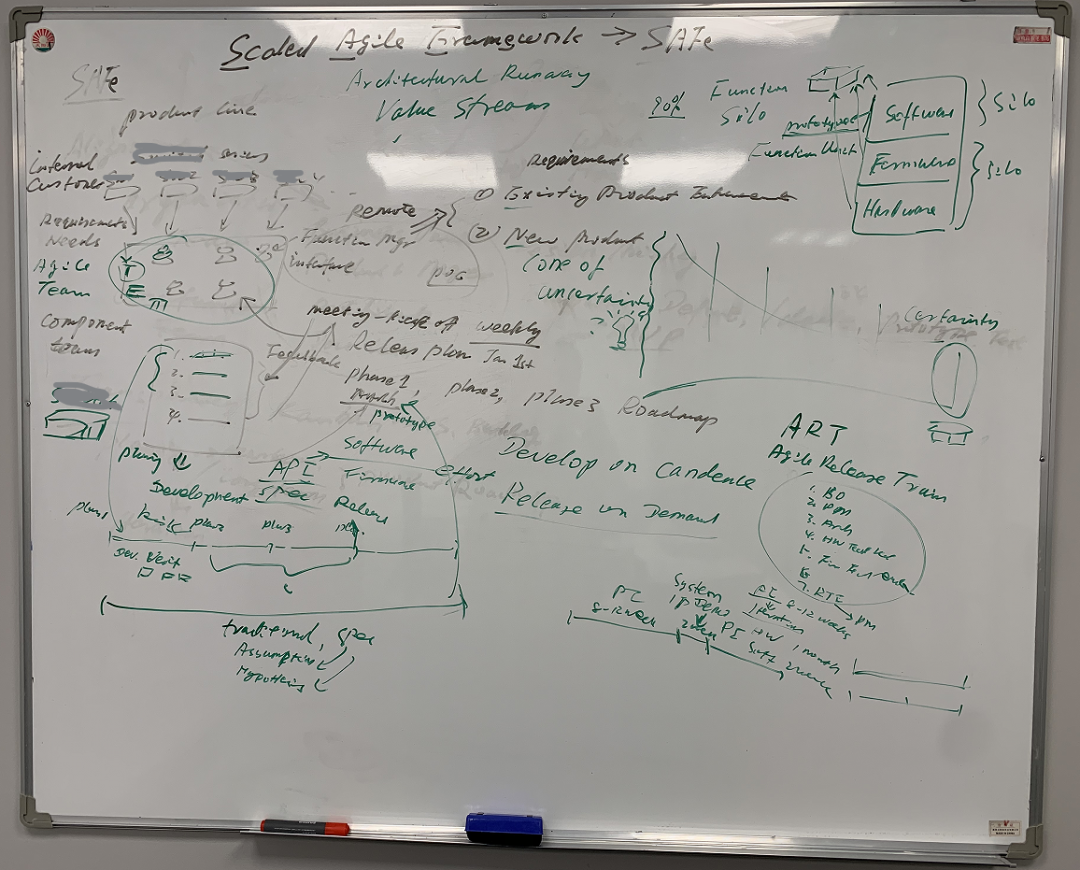 Scaled Agile Framework → SAFe
SAFe
Architectural Runway
Value Streams
product line
series
Internal
Customer
Requirements
Needs
Agile
Team
T
E
component
teams
90%
Function
Silo
prototype
Function Unit
Software
Firmware
Hardware
Silo
Silo
Requirements
① Existing Product Enhancement
② New product
Cone of
uncertainty
Certainty
Remote
Function Mgr
interface
POC
meeting - kick off weekly
Release plan Jan 1st
Feedback
phase 1, phase2, phase3 Roadmap
prototype
1.
2.
3.
4.
planning
API
spec
Software
Firmware
effort
Development
Release
plans
plans
plans
Dev. Verif
traditional, spec
Assumption
Hypothesis
Develop on Candence
Release on Demand
ART
Agile Release Train
1. BO
2. PM
3. Arch
4.
5.
6
7. RTE → PM
PI
8-12 week
System
IP Demo
2 week
PI
PI 8-12 weeks
Iterations
HW 1 month
Soft 2 week